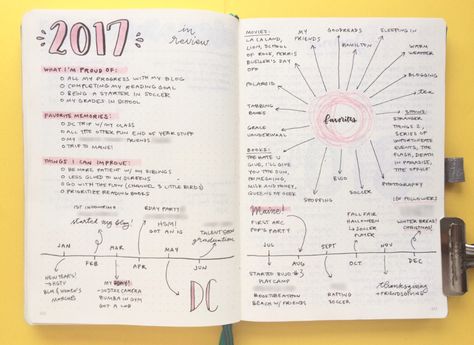 2017
in
review
WHAT I'M PROUD OF:
O ALL MY PROGRESS WITH MY BLOG
O COMPLETING MY READING GOAL
O BEING A STARTER IN SOCCER
O MY GRADES IN SCHOOL
FAVORITE MEMORIES:
O DC TRIP W/ MY CLASS
O ALL THE OTHER FUN END OF YEAR STUFF
O MY FRIENDS
O TRIP TO MAINE!
THINGS I CAN IMPROVE:
O BE MORE PATIENT W/ MY SIBLINGS
O LESS GLUED TO MY SCREENS
O GO WITH THE FLOW (CHANNEL 3 LITTLE BIRDS)
O PRIORITIZE READING BOOKS
started my blog!
BDAY PARTY!
HSM!
GOT AN IG
TALENT SHOW
graduation
JAN
FEB
MAR
APR
MAY
JUN
NEW YEARS!
BLM & WOMEN'S
MARCHES
MY BDAY!
RUMBA IN GYM
GOT A LAB
DC
MOVIES:
LA LA LAND,
LION, SCHOOL
OF ROCK, FERRIS
BUELLER'S DAY
OFF
MY
FRIENDS
GOODREADS
HAMILTON
SLEEPING IN
WARM
WEATHER
BLOGGING
tea
POLAROID
TABBING
BOOKS
GRACE
VANDERWAAL
favorites
SHOWS:
STRANGER
THINGS 2,
SERIES OF
UNFORTUNATE
EVENTS, THE
FLASH, DEATH
IN PARADISE,
THE OFFICE
BOOKS:
THE HATE U
GIVE, I'LL GIVE
YOU THE SUN,
SHOPPING
BUJO
SOCCER
PHOTOGRAPHY
Maine!
FIRST ARC
POP'S PARTY
FALL FAIR
HALLOWEEN
↳ SOCCER
PLAYER
WINTER BREAK!
CHRISTMAS!
JUL
AUG
SEPT
OCT
NOV
DEC
STARTED BUJO #3
PLAY CAMP
BEACH W/ FRIENDS
RAFTING
SOCCER
thanksgiving
+FRIENDSGIVING